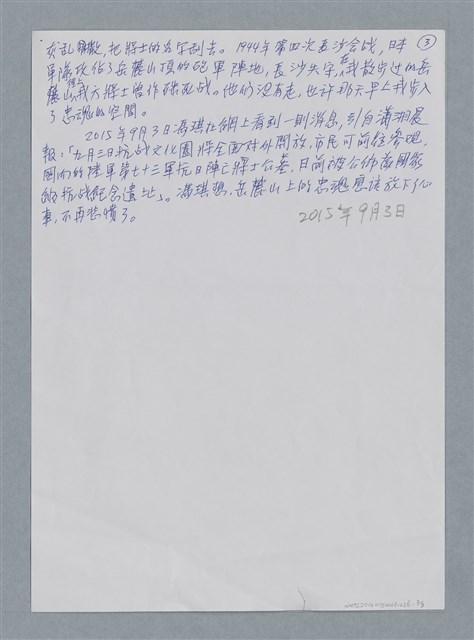 ③
灾乱
,把將士的名字刮去。1944年第四次長沙会战,日本
軍隊攻佔了岳麓山頂的砲軍陣地,長沙失守,在我散步过的岳
麓山,我方將士曾作殊死战。他们沒有走,也许那天早上我步入
了忠魂的空間。
2015年9月3日馮琪在網上看到一則消息,引自瀟湘晨
報:「九月三日抗战文化園將全面对外開放,市民可前往参观,
園内的陸軍第七十三軍抗日陣亡將士公墓,日前被公佈為國家
的抗战紀念遺址」。馮琪想,岳麓山上的忠魂應该放下心
事,不再悲憤了。
2015年9月3日